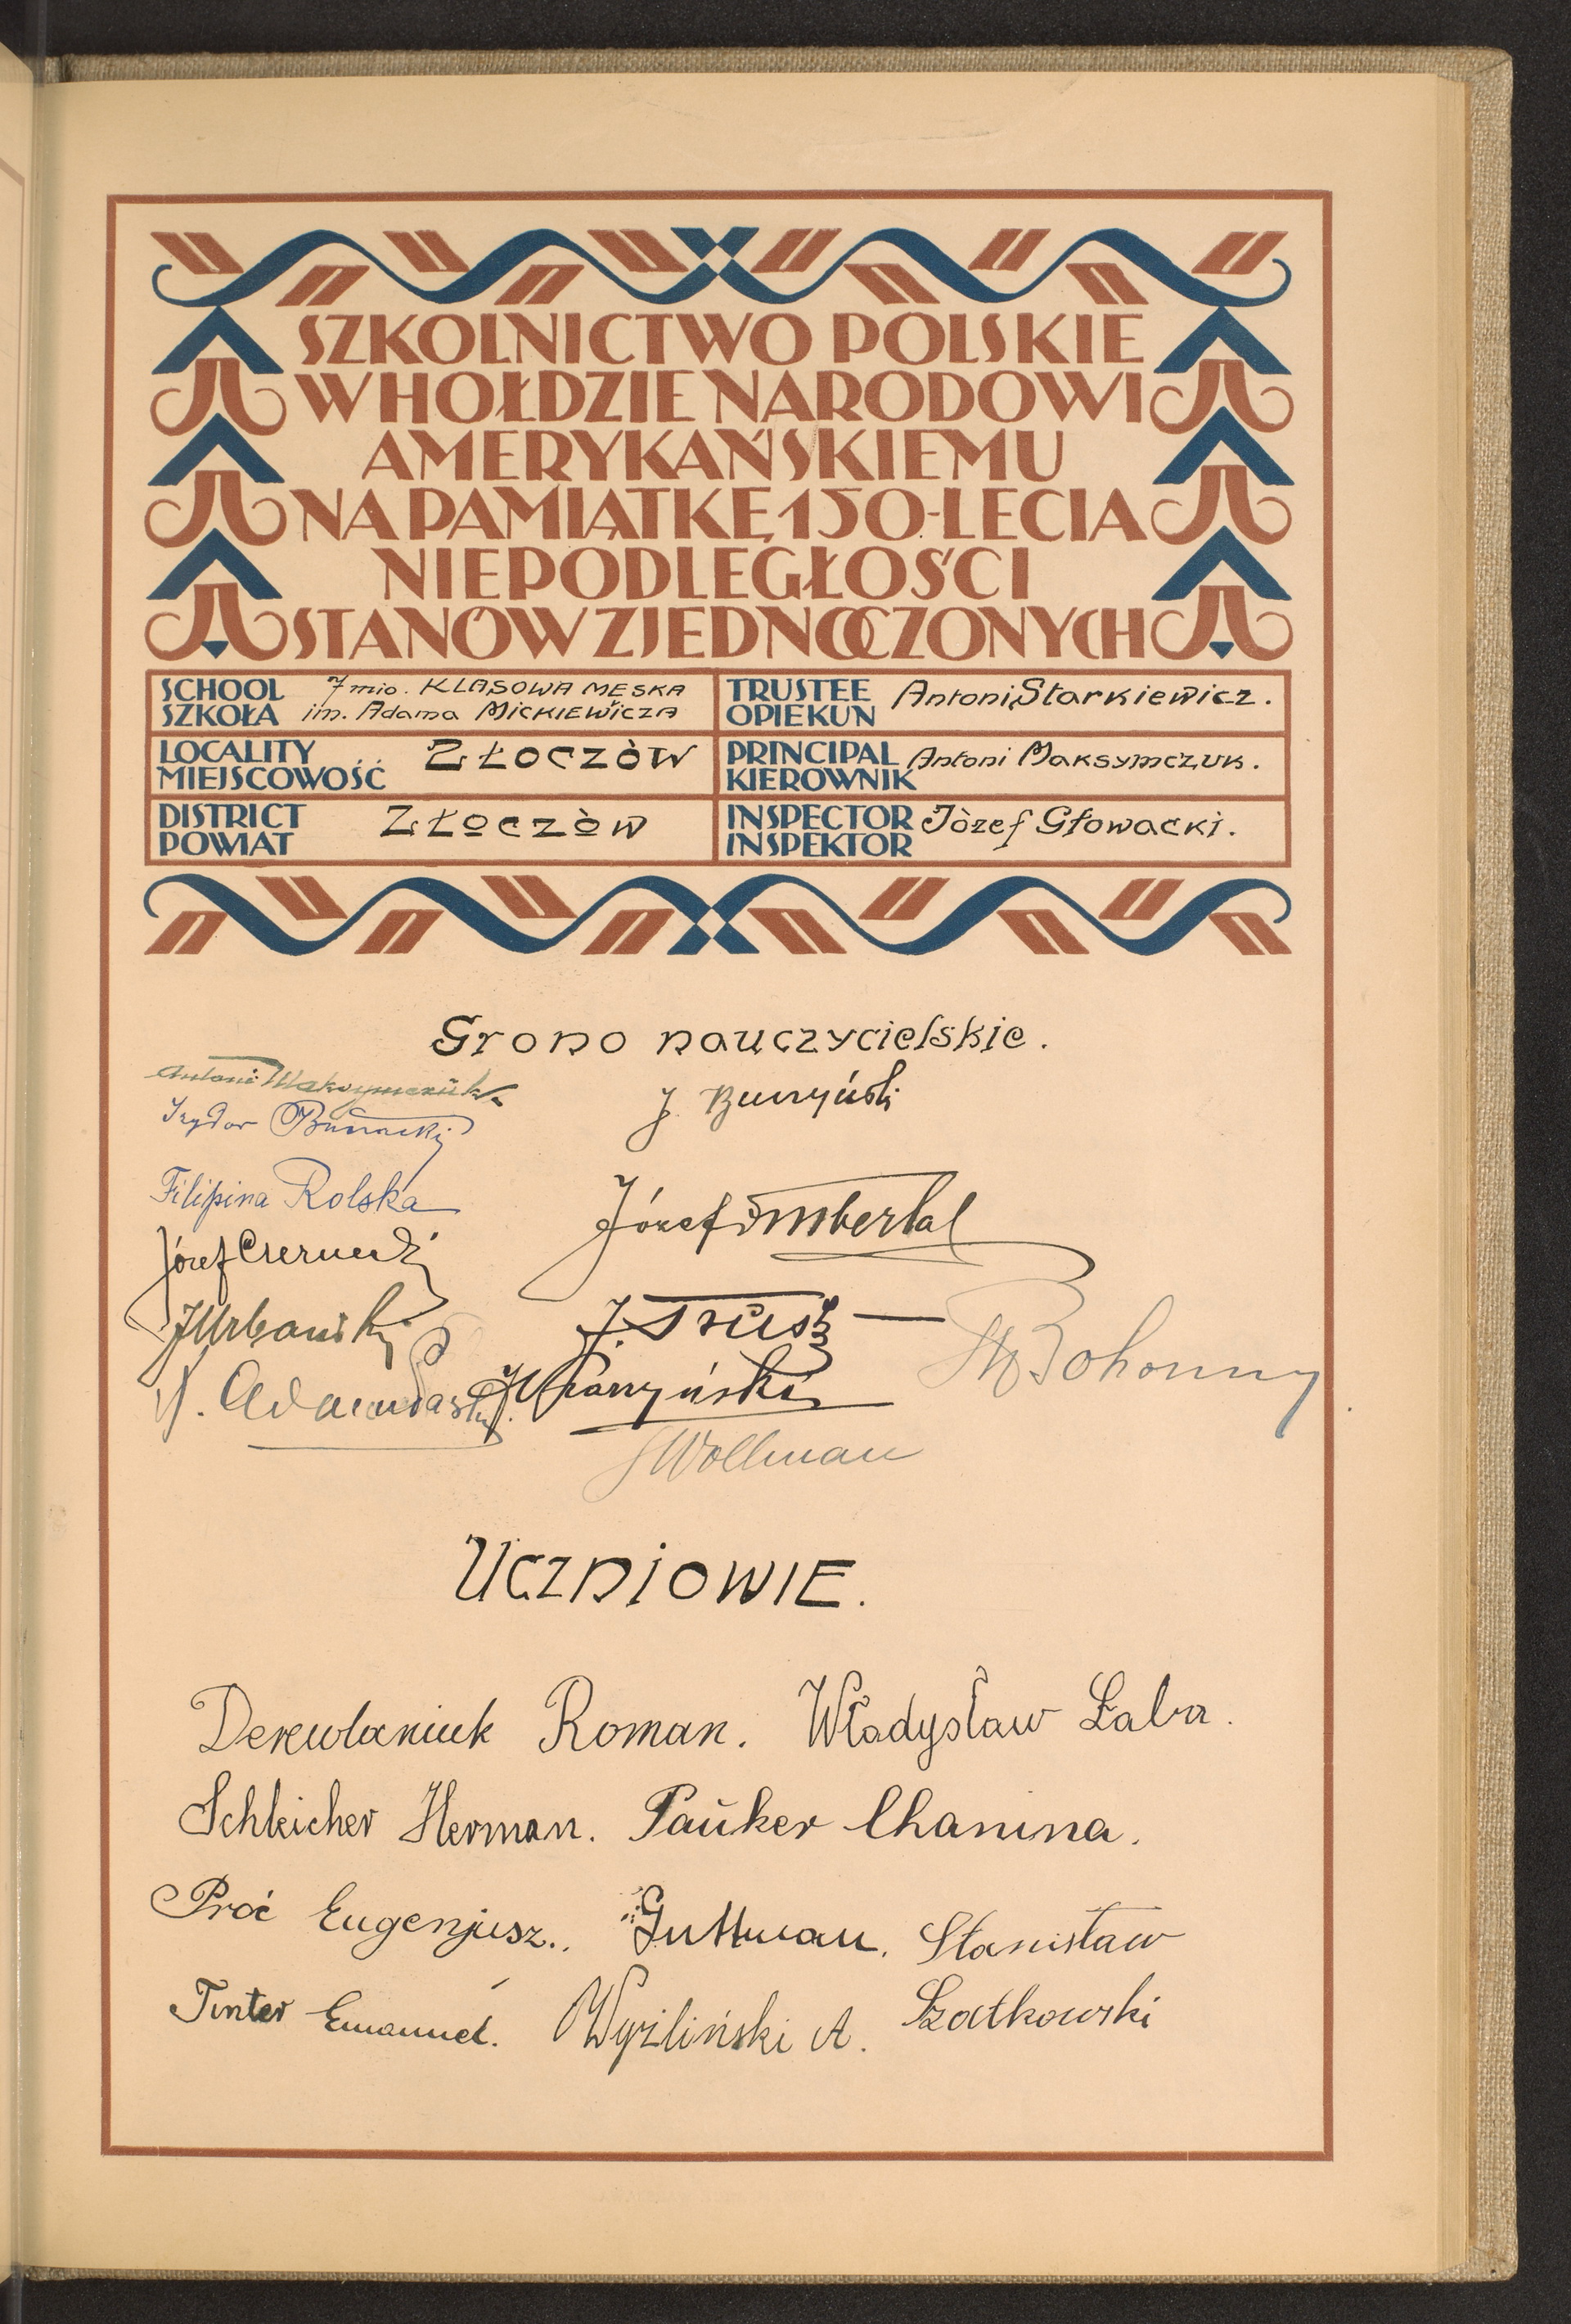 SZKOLNICTWO POLSKIE
W HOŁDZIE NARODOWI
AMERYKAŃSKIEMU
NA PAMIĄTKĘ 150-LECIA
NIEPODLEGŁOŚCI
STANÓW ZJEDNOCZONYCH
SCHOOL
SZKOŁA
7 mio. KLASOWA MESKA
im. Adama MICKIEWICZA
TRUSTEE
OPIEKUN
Antoni Starkiewicz.
LOCALITY
MIEJSCOWOŚĆ
ZŁOCZÒW
PRINCIPAL
KIEROWNIK
Antoni Maksymczuk.
DISTRICT
POWIAT
ZŁOCZÒW
INSPECTOR
INSPEKTOR
Jòzef Głowacki.
Grono nauczycielskie.
Antoni Maksymczuk
Izydor
J.
Filipina Rolska
Józef
Józef
J Urbański
J. Trusz
Bohonny
J Wollman
UCZNIOWIE.
Derewlaniuk Roman. Władysław Łaba.
Schleicher Herman. Pauker Chanina.
Proć Eugenjusz.. Guttman. Stanisław
Tinter Emanuel. Wyżliński A. Szatkowski